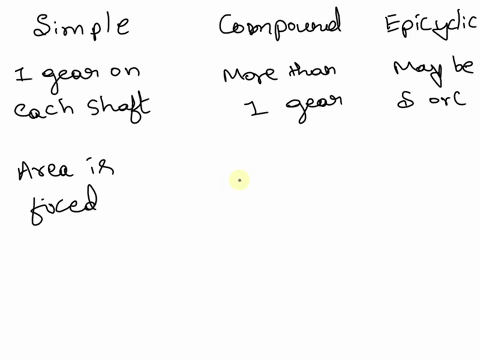 Simple Compound Epicyclic
1 gear on More than May be
each shaft 1 gear S or C
Area is
fixed